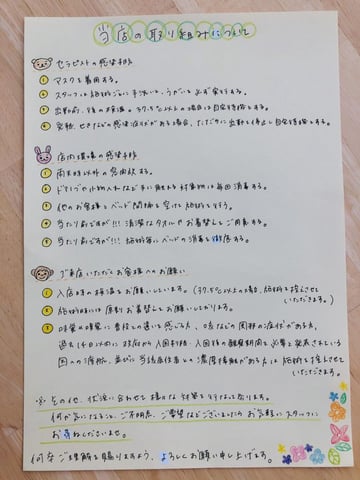 当店の取り組みについて
セラピストの感染予防
① マスクを着用する。
② スタッフは施術ごとに手洗いと、うがいを必ず実施する。
③ 出勤前、後の検温。37.5℃以上の場合は自宅待機とする。
④ 発熱、せきなどの感染症状がある場合、ただちに出勤を停止し自宅待機とする。
店内環境の感染予防
① 雨天時以外の窓開放する。
② ドアノブや小物入れなど手に触れる対象物は毎回消毒する。
③ 他のお客様とベッド間隔を空けて施術を行う。
④ 当たり前ですが!!! 清潔なタオルやお着替えをご用意する。
⑤ 当たり前ですが!!! 施術毎にベッドの消毒を徹底する。
ご来店いただくお客様へのお願い
① 入店時の検温をお願いしています。(37.5℃以上の場合、施術を控えさせて
いただきます。)
② 施術時には原則お着替えをお願いしております。
③ 味覚や嗅覚に普段との違いを感じる方、咳などの風邪の症状がある方、
過去14日以内に政府から入国制限、入国後の観察期間を必要と発表されている
国への渡航、並びに当該居住者との濃厚接触がある方は施術を控えさせて
いただきます。
※ その他、状況に合わせて様々な対策を行なっております。
何か気になること、ご不明点、ご要望などございましたらお気軽にスタッフに
お尋ねくださいませ。
何卒ご理解を賜りますよう、よろしくお願い申し上げます。